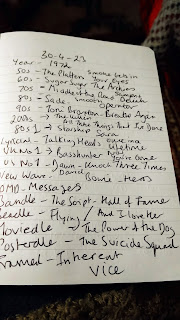 30-4-23
Year - 1972
50s - The Platters Smoke Gets in Your Eyes
60s - Sugar Sugar The Archies
70s - Middle of the Road Sampson
80s - Sade - Smooth Operator
90s - Toni Braxton - Breathe Again
2000s - The
All The Things That I've Done
80s 1 - Starship Sara
Lyrical - Talking Heads Once in a Lifetime
UK No 1 - Basshunter Now You're Gone
US No 1 - Dawn - Knock Three Times
New Wave - David Bowie - Heroes
OMD - Messages
Bandle - The Script - Hall of Fame
Beadle - Flying / And I love Her
Moviedle - The Power of the Dog
Posterdle - The Suicide Squad
Framed - Inherent Vice